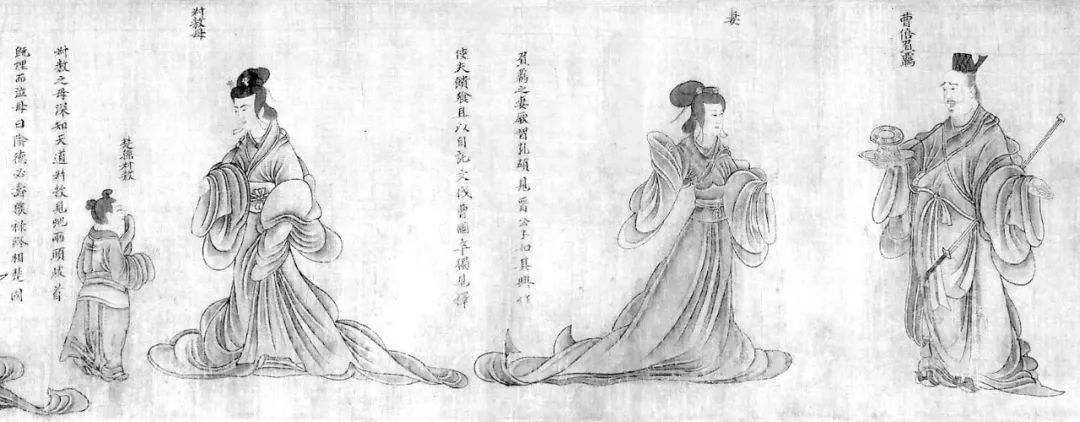 曹僖負羈
妻
負羈之妻厥智孔碩見晉公子知其興作
使夫饋飱且以自託文伐曹國卒獨見釋
叔敖母
楚孫叔敖
叔敖之母深知天道叔敖見蛇兩頭岐首
既埋而泣母曰陰德必壽終相楚國